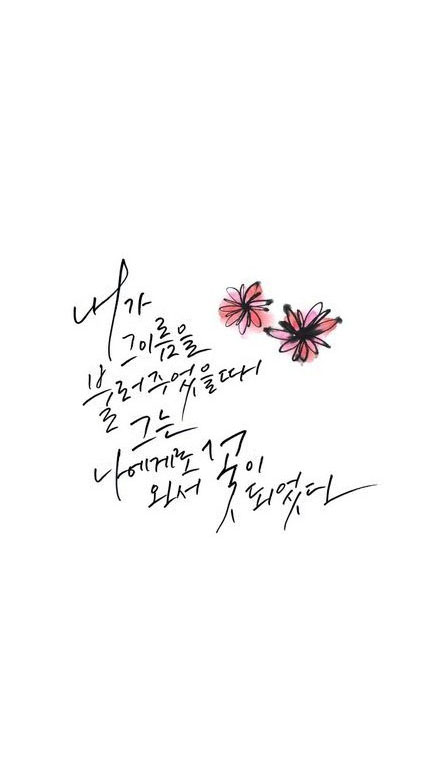 내가
그이름을
불러주었을때
그는
나에게로
와서 꽃이
되었다